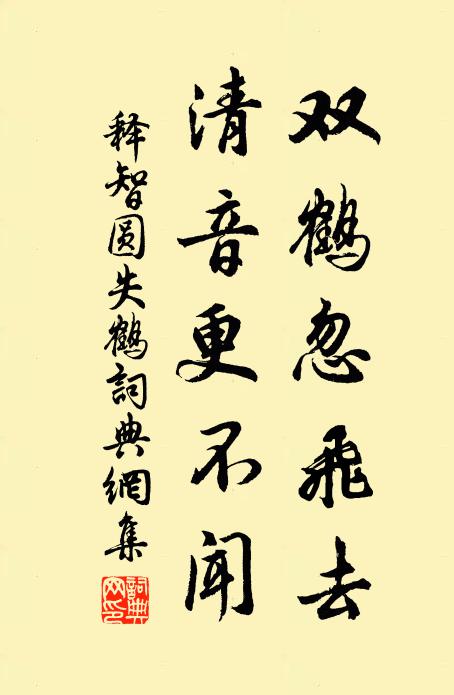 双鹤忽飞去
清音更不闻
释智圆失鹤詞典網集
詞典网印